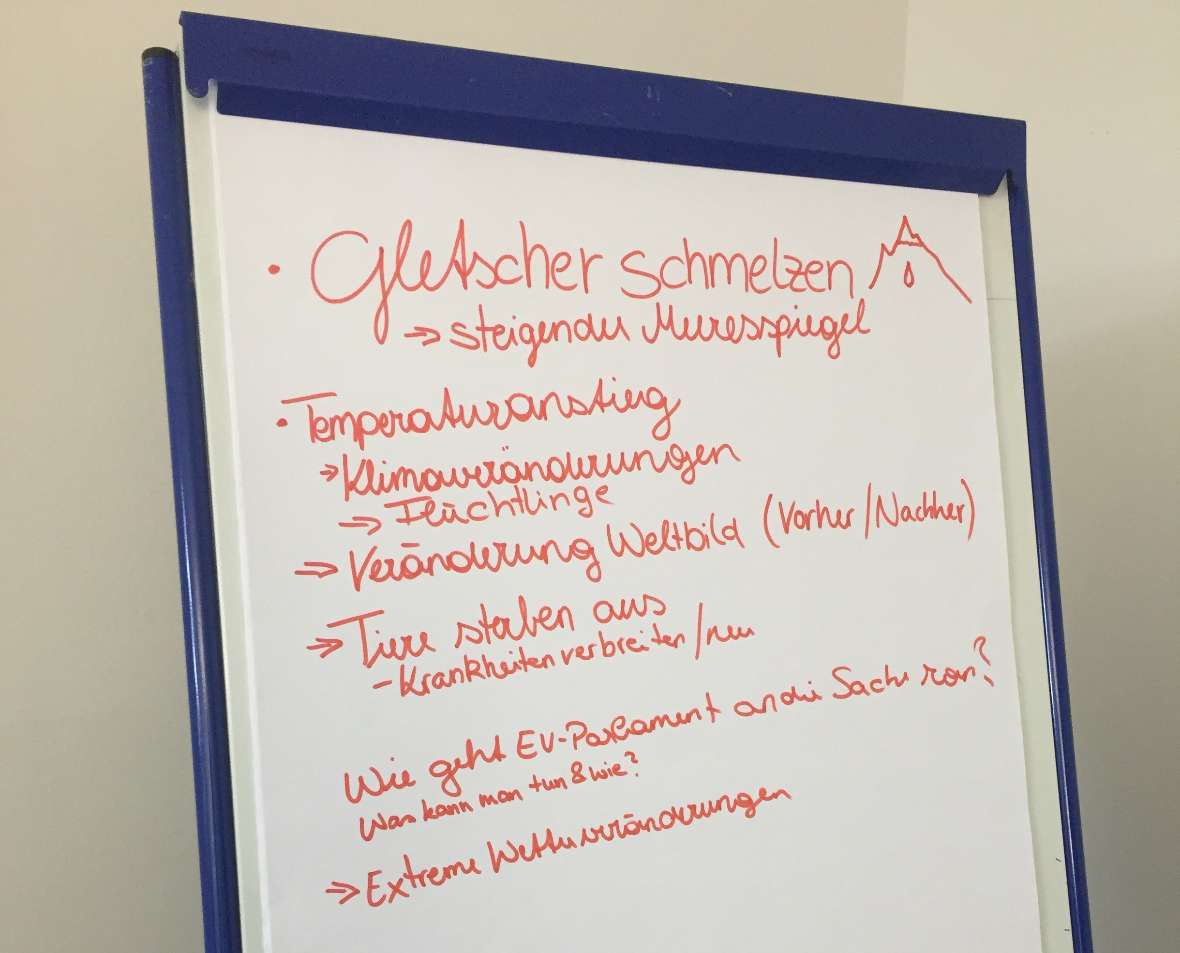 • Gletscher schmelzen
⇒ steigender Meeresspiegel
• Temperaturanstieg
⇒ Klimaveränderungen
⇒ Flüchtlinge
⇒ Veränderung Weltbild (Vorher/Nachher)
⇒ Tiere sterben aus
- Krankheiten verbreiten/neu
Wie geht EU-Parlament an die Sache ran?
Was kann man tun & wie?
⇒ Extreme Wetterveränderungen